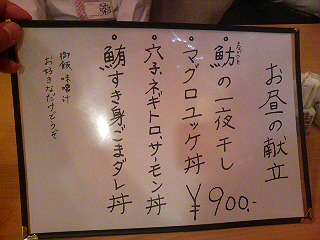 お昼の献立
・魴の一夜干し
・マグロユッケ丼
¥900.-
・穴子、ネギトロ、サーモン丼
・鮪すき身ごまダレ丼
御飯 味噌汁
お好きなだけどうぞ